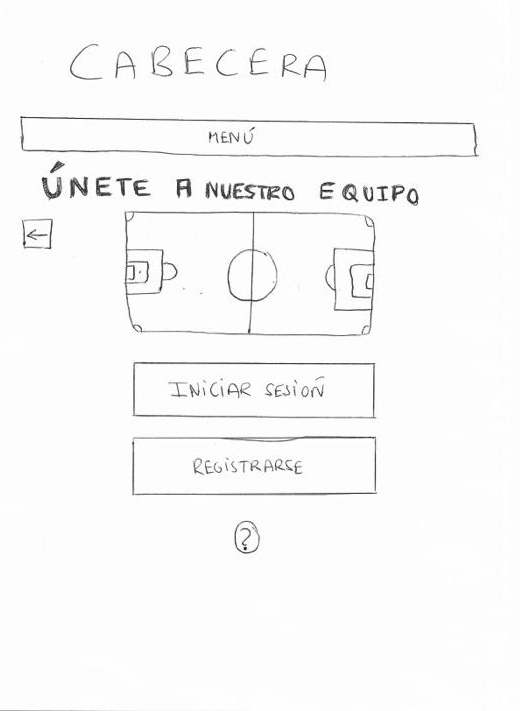 CABECERA
MENÚ
ÚNETE A NUESTRO EQUIPO
←
INICIAR SESIOÑ
REGISTRARSE
?